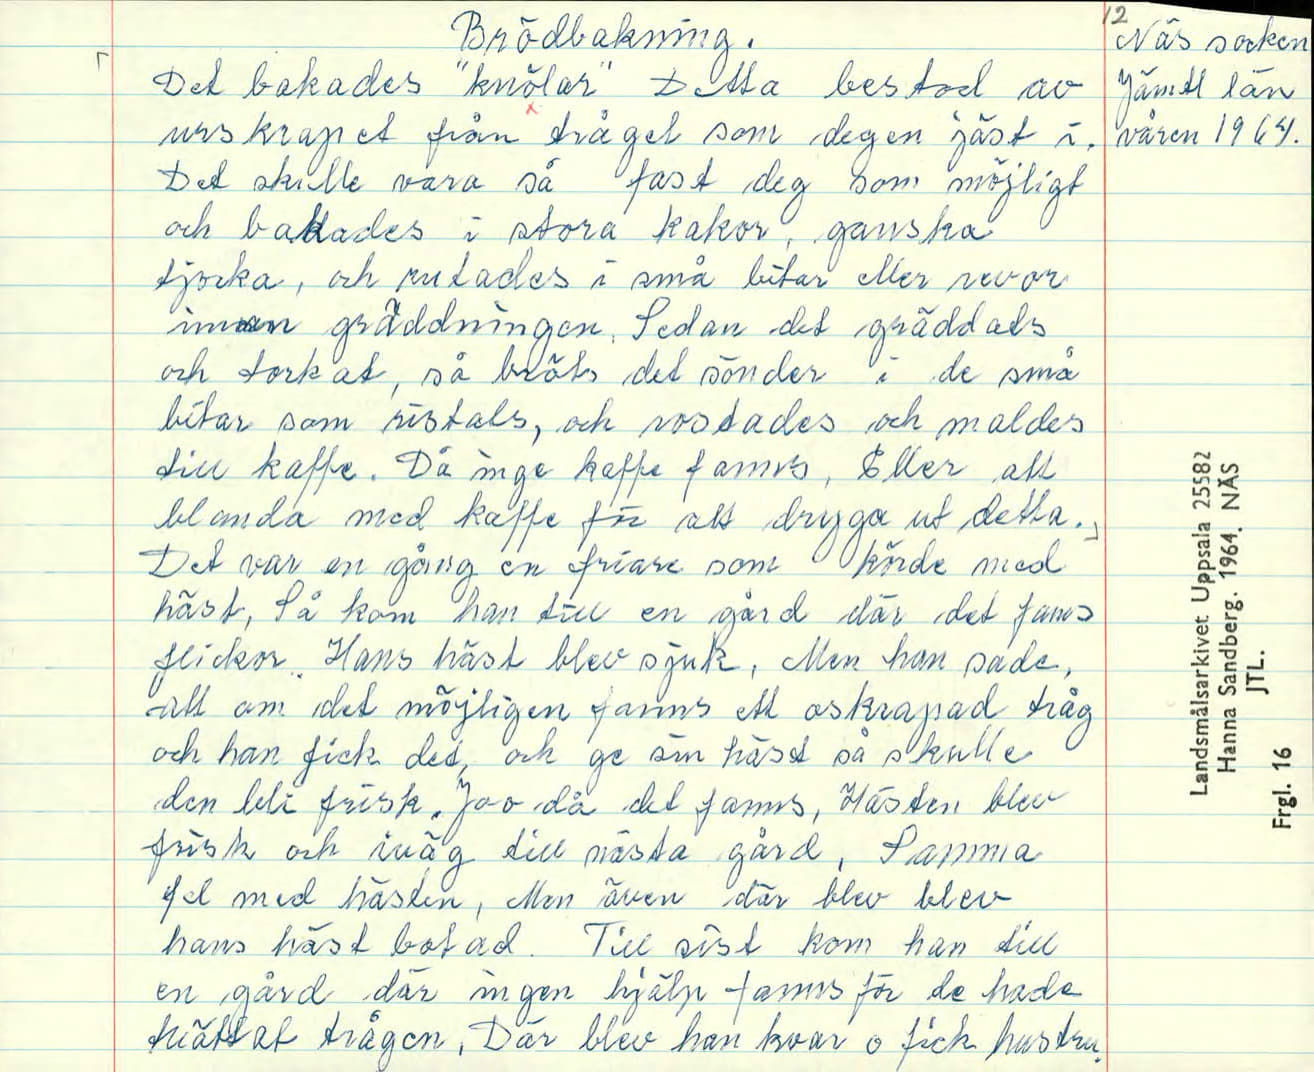 12
Brödbakning.
Näs socken
Jämtl län
våren 1964.
Det bakades "knölar" Detta bestod av
urskrapet från tråget som degen jäst i.
Det skulle vara så fast deg som möjligt
och bakades i stora kakor, ganska
tjocka, och rutades i små bitar eller revor
innan gräddningen. Sedan det gräddats
och torkat, så bröts det sönder i de små
bitar som ristats, och rostades och maldes
till kaffe. Då inge kaffe fanns, Eller att
blanda med kaffe för att dryga ut detta.
Det var en gång en friare som körde med
häst, Så kom han till en gård där det fanns
flickor. Hans häst blev sjuk, Men han sade,
att om det möjligen fanns ett oskrapad tråg
och han fick det, och ge sin häst så skulle
den bli frisk. Joo då det fanns, Hästen blev
frisk och iväg till nästa gård, Samma
fel med hästen, Men även där blev blev
hans häst botad. Till sist kom han till
en gård där ingen hjälp fanns för de hade
tvättat trågen, Där blev han kvar o fick hustru.
Landsmålsarkivet Uppsala 25582
Hanna Sandberg. 1964. NÄS
JTL.
Frgl. 16